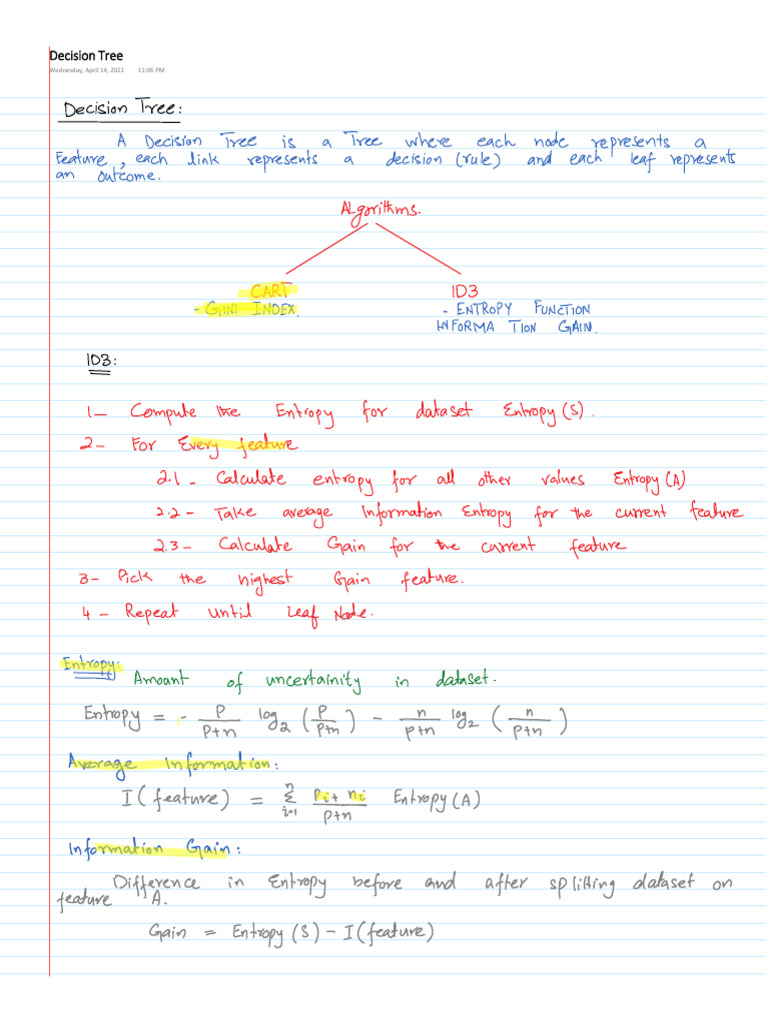 Decision Tree
Wednesday, April 14, 2021 11:06 PM
Decision Tree:
A Decision Tree is a Tree where each node represents a
Feature, each link represents a decision (rule) and each leaf represents
an outcome.
Algorithms.
CART ID3
- GINI INDEX. - ENTROPY FUNCTION
INFORMA TION GAIN.
ID3:
1- Compute the Entropy for dataset Entropy(S).
2- For Every feature
2.1- Calculate entropy for all other values Entropy(A)
2.2- Take average Information Entropy for the current feature
2.3- Calculate Gain for the current feature
3- Pick the highest Gain feature.
4- Repeat until Leaf Node.
Entropy:
Amount of uncertainity in dataset.
Entropy = - P/P+n log2 (P/P+n) - n/p+n log2 (n/P+n)
Average Information:
I(feature) = n Σ i=1 Pi+ni/p+n Entropy(A)
Information Gain:
Difference in Entropy before and after splitting dataset on
feature A.
Gain = Entropy(S) - I(feature)